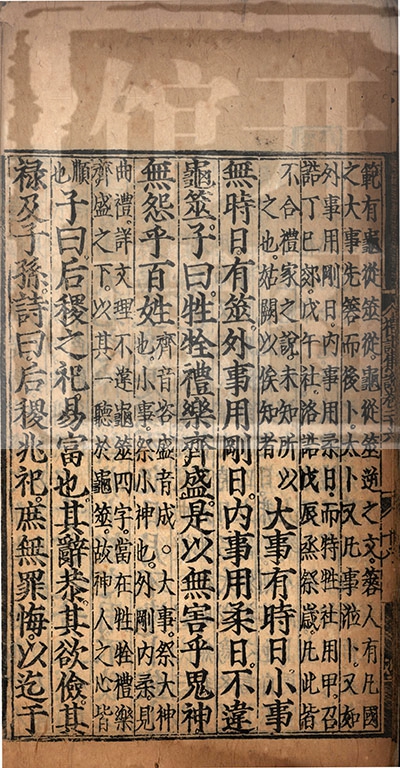 範有龜從筮從龜從筮逆之文蓍人有凡國
之大事先筮而後卜太卜又凡事涖卜又如
外事用剛日內事用柔日而特牲社用甲召
誥丁巳郊戊午社洛誥戊辰烝祭歲凡此皆
不合禮家之說未知所以
之也姑闕以俟知者
大事有時日小事
無時日有筮外事用剛日內事用柔日不違
龜筮子曰牲牷禮樂齊盛是以無害乎鬼神
無怨乎百姓
齊音咨盛音成。大事祭大神
也小事祭小神也外剛內柔見
曲禮詳文理不違龜筮四字當在牲牷禮樂
齊盛之下以其一聽於龜筮故神人之心皆
順
也
子曰后稷之祀易富也其辭恭其欲儉其
祿及子孫詩曰后稷兆祀庶無罪悔以迄于